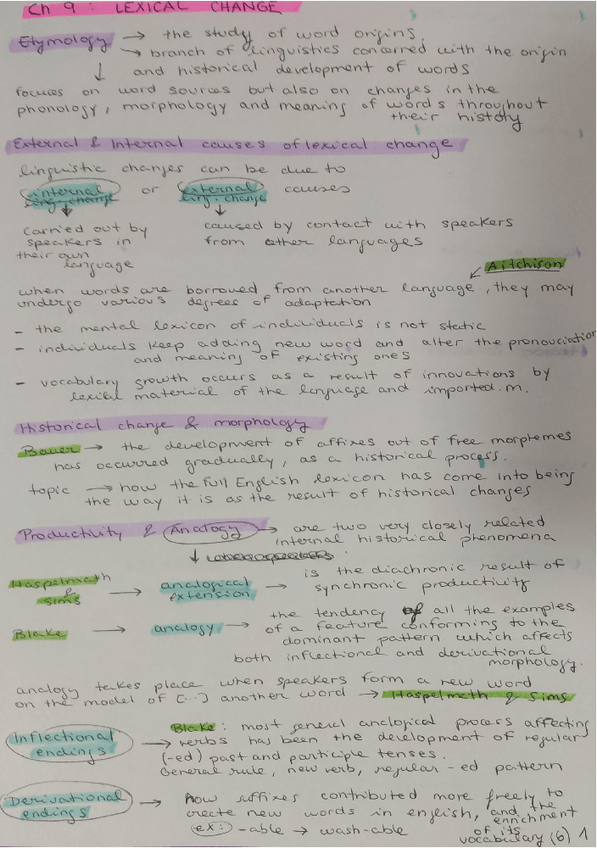 Ch 9: LEXICAL CHANGE
Etymology → the study of word origins.
→ branch of linguistics concerned with the origin
and historical development of words
focuses on word sources but also on changes in the
phonology, morphology and meaning of words throughout
their history
External & Internal causes of lexical change
linguistic changes can be due to
internal or external causes
ling. change ling. change
carried out by
speakers in
their own
language
caused by contact with speakers
from other languages
Aitchison
when words are borrowed from another language, they may
undergo various degrees of adaptation
- the mental lexicon of individuals is not static
- individuals keep adding new word and alter the pronouciation
and meaning of existing ones
- vocabulary growth occurs as a result of innovations by
lexical material of the language and imported.m.
Historical change & morphology
Bauer → the development of affixes out of free morphemes
has occurred gradually, as a historical process.
topic → how the full English lexicon has come into being
the way it is as the result of historical changes
Productivity & Analogy → are two very closely related
internal historical phenomena
Haspelmath & Sims → analogical extension → is the diachronic result of
synchronic productivity
Blake → analogy → the tendency of all the examples
of a feature conforming to the
dominant pattern which affects
both inflectional and derivational
morphology.
analogy takes place when speakers form a new word
on the model of (...) another word → Haspelmeth & Sims
Inflectional endings → Blake: most general analogical process affecting
verbs has been the development of regular
(-ed) past and participle tenses.
General rule, new verb, regular -ed pattern
Derivational endings → how suffixes contributed more freely to
create new words in english, and the
enrichment
of its
vocabulary (6)
ex: -able → wash-able
1